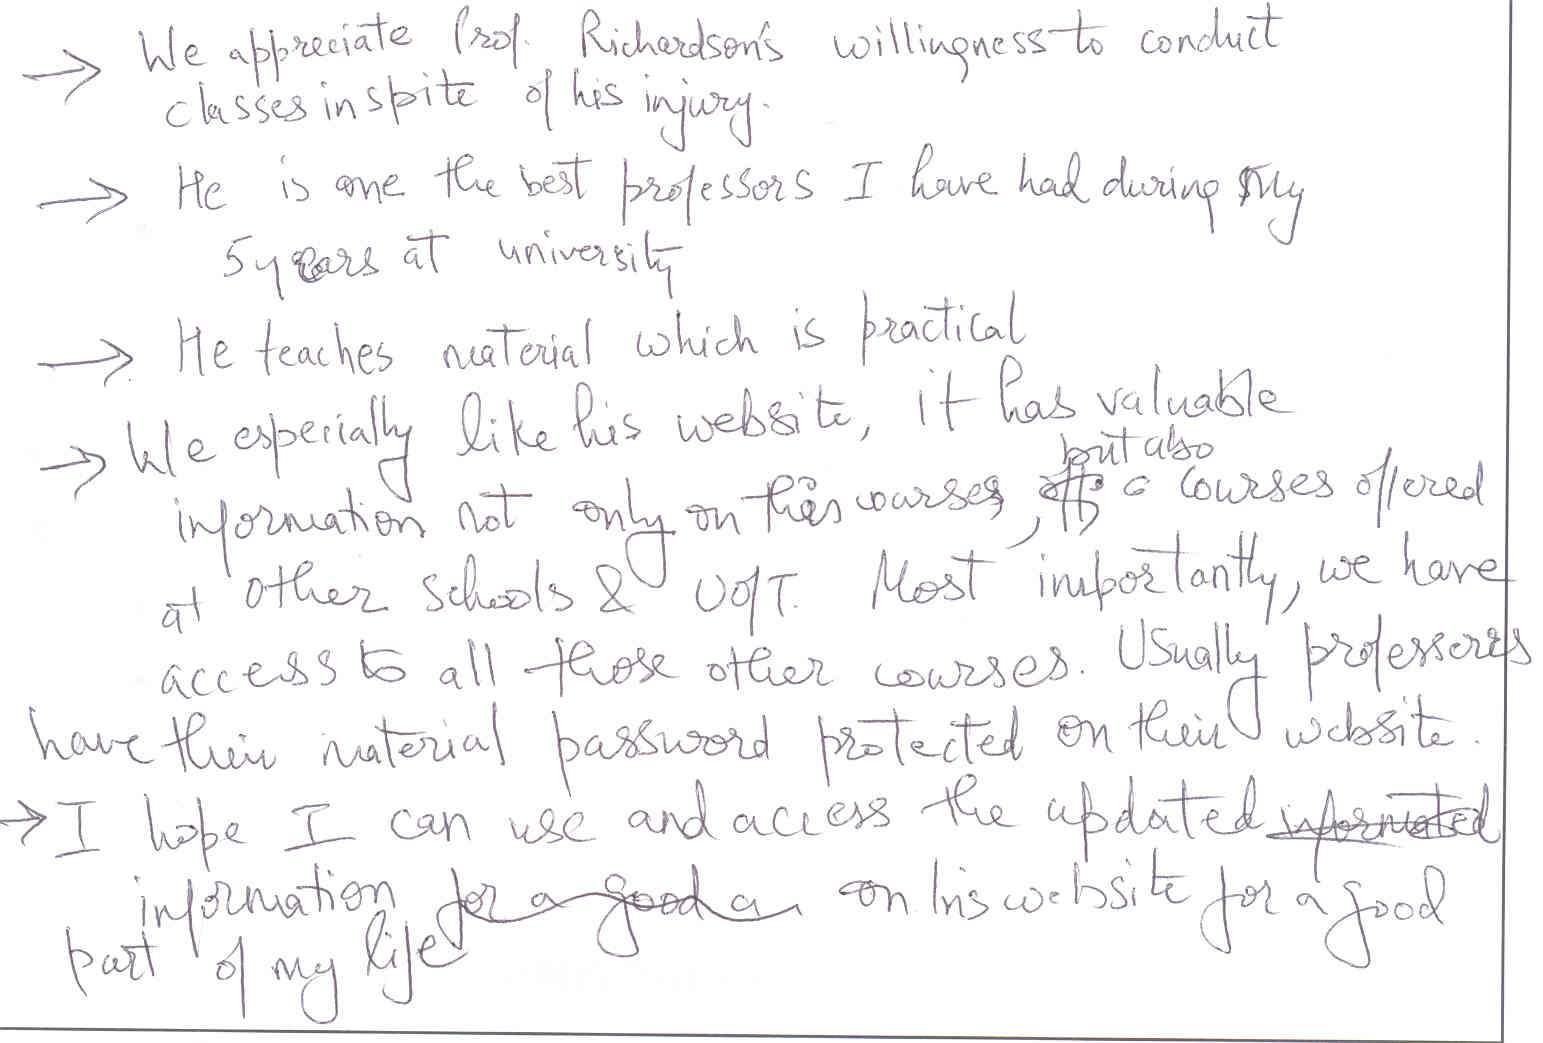 → We appreciate Prof. Richardson's willingness to conduct
classes in spite of his injury.
→ He is one the best professors I have had during my
5 years at university
→ He teaches material which is practical
→ We especially like his website, it has valuable
but also
information not only on this courses, courses offered
at other schools & UofT. Most importantly, we have
access to all those other courses. Usually professors
have their material password protected on their website.
→ I hope I can use and access the updated informated
information for a good a on his website for a good
part of my life